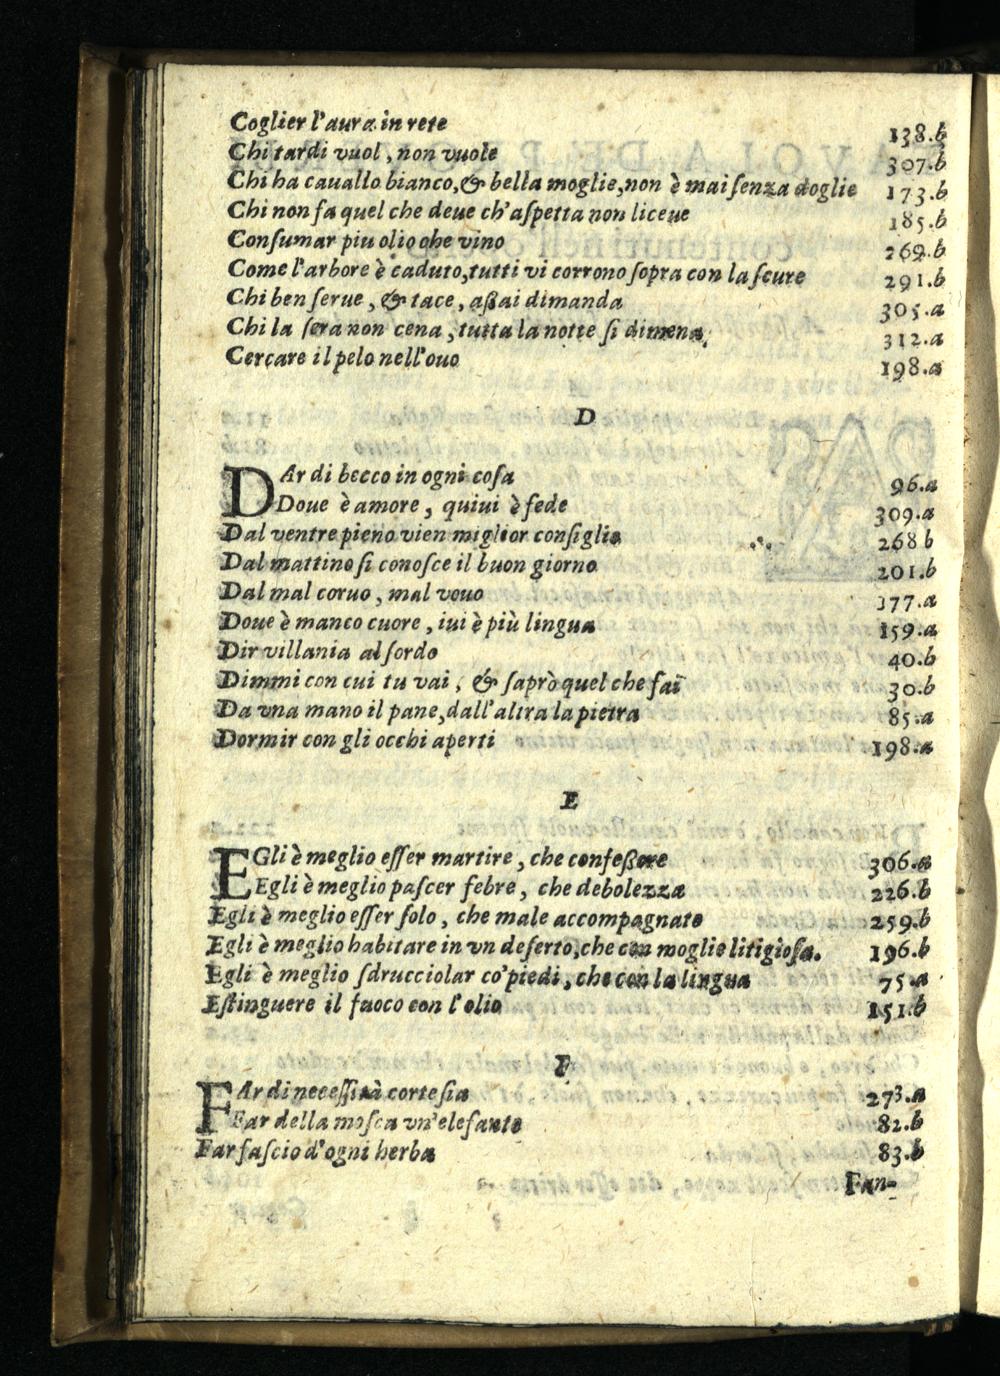 Coglier l'aura in rete 138.b
Chi tardi vuol, non vuole 307.b
Chi ha cauallo bianco,& bella moglie,non è mai ſenza doglie 173.b
Chi non fa quel che deue ch'aſpetta non liceue 185.b
Conſumar piu olio che vino 269.b
Come l'arbore è caduto,tutti vi corrono ſopra con la ſcure 291.b
Chi ben ſerue, & tace, aßai dimanda 305.a
Chi la ſera non cena, tutta la notte ſi dimena, 312.a
Cercare il pelo nell'ouo 198.a
D
DAr di becco in ogni coſa 96.a
Doue è amore, quiui è fede 309.a
Dal ventre pieno vien miglior conſiglio 268 b
Dal mattino ſi conoſce il buon giorno 201.b
Dal mal coruo, mal vouo 177.a
Doue è manco cuore, iui è più lingua 159.a
Dir villania al ſordo 40.b
Dimmi con cui tu vai, & ſaprò quel che fai 30.b
Da vna mano il pane,dall'altra la pietra 85.a
Dormir con gli occhi aperti 198.a
E
EGli è meglio eſſer martire, che confeßore 306.a
Egli è meglio paſcer febre, che debolezza 226.b
Egli è meglio eſſer ſolo, che male accompagnato 259.b
Egli è meglio habitare in vn deſerto,che con moglie litigioſa. 196.b
Egli è meglio ſdrucciolar co'piedi, che con la lingua 75.a
Eſtinguere il fuoco con l'olio 151.b
F
FAr di neceſſità corteſia 273.a
Far della moſca vn'elefante 82.b
Far faſcio d'ogni herba 83.b
Fan-